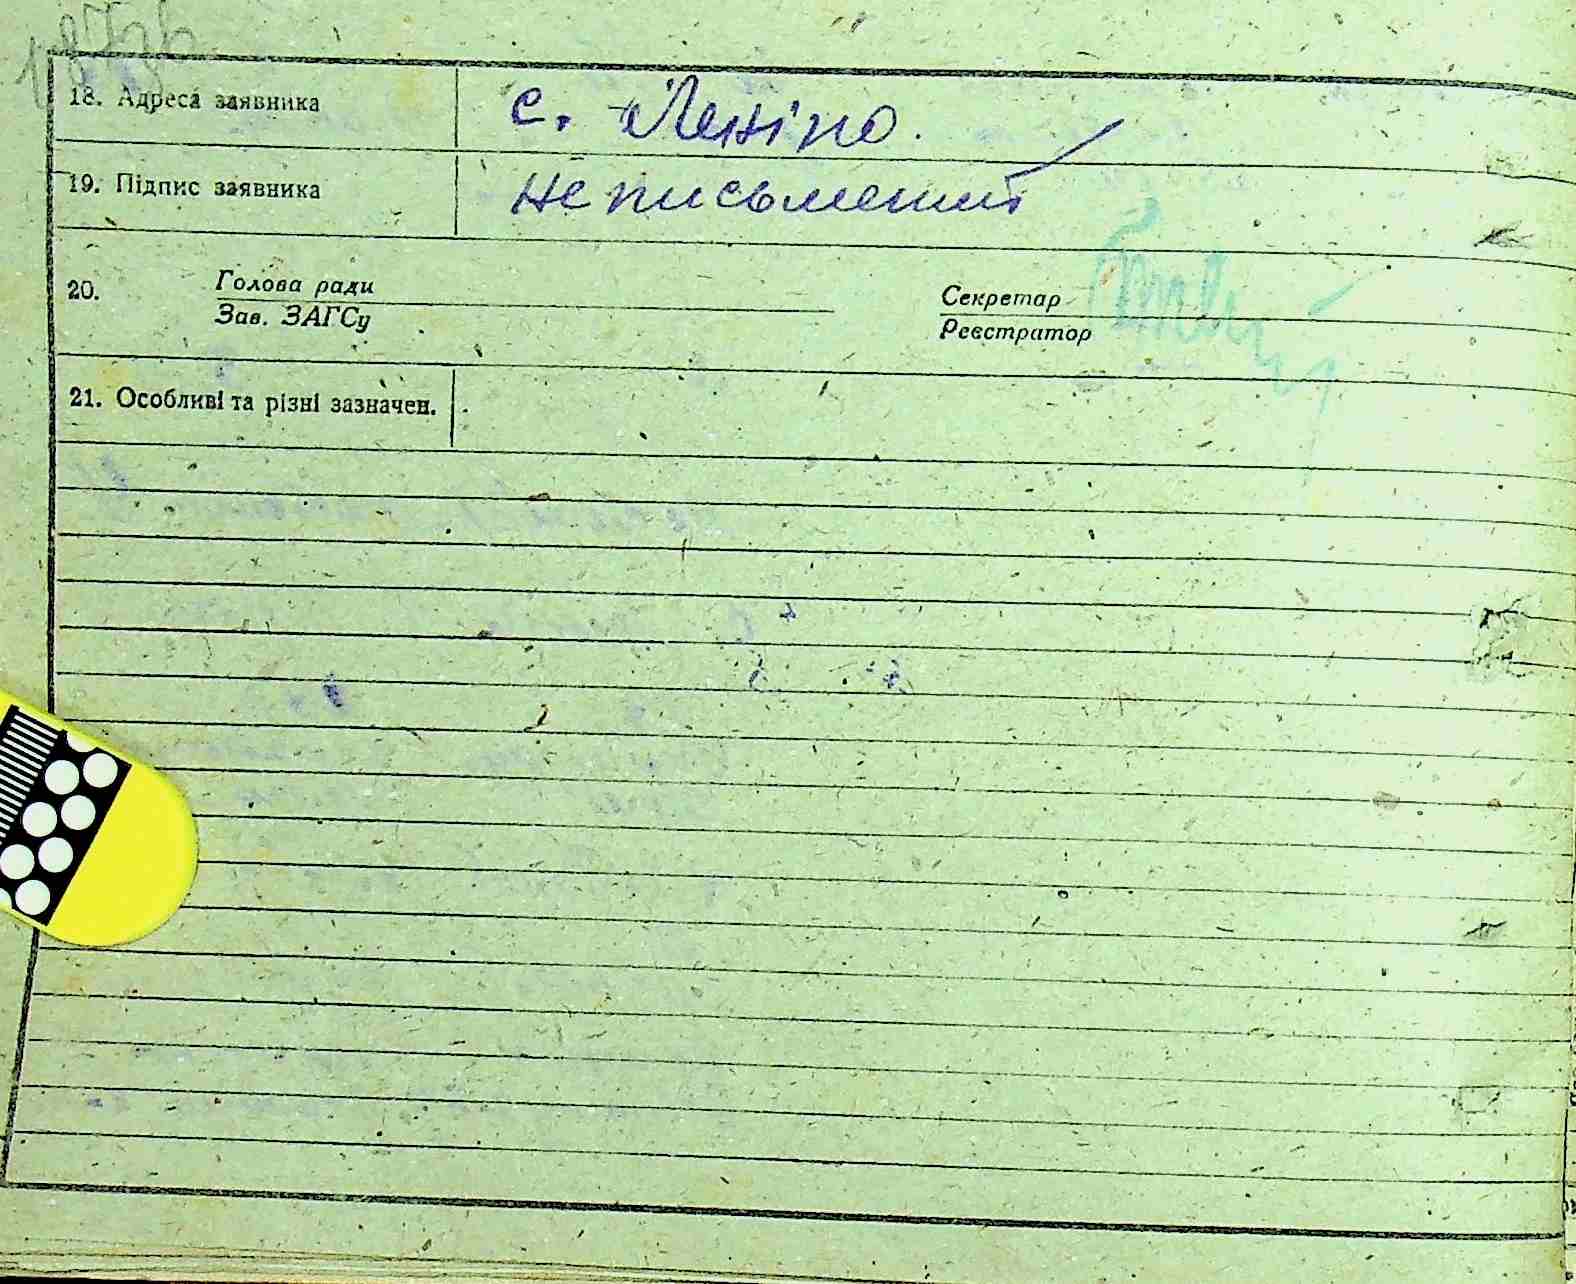 18. Адреса заявника с. Леніно.
19. Підпис заявника неписьменний
20. Голова ради Секретар
Зав. ЗАГСу Реєстратор
21. Особливі та різні зазначен.